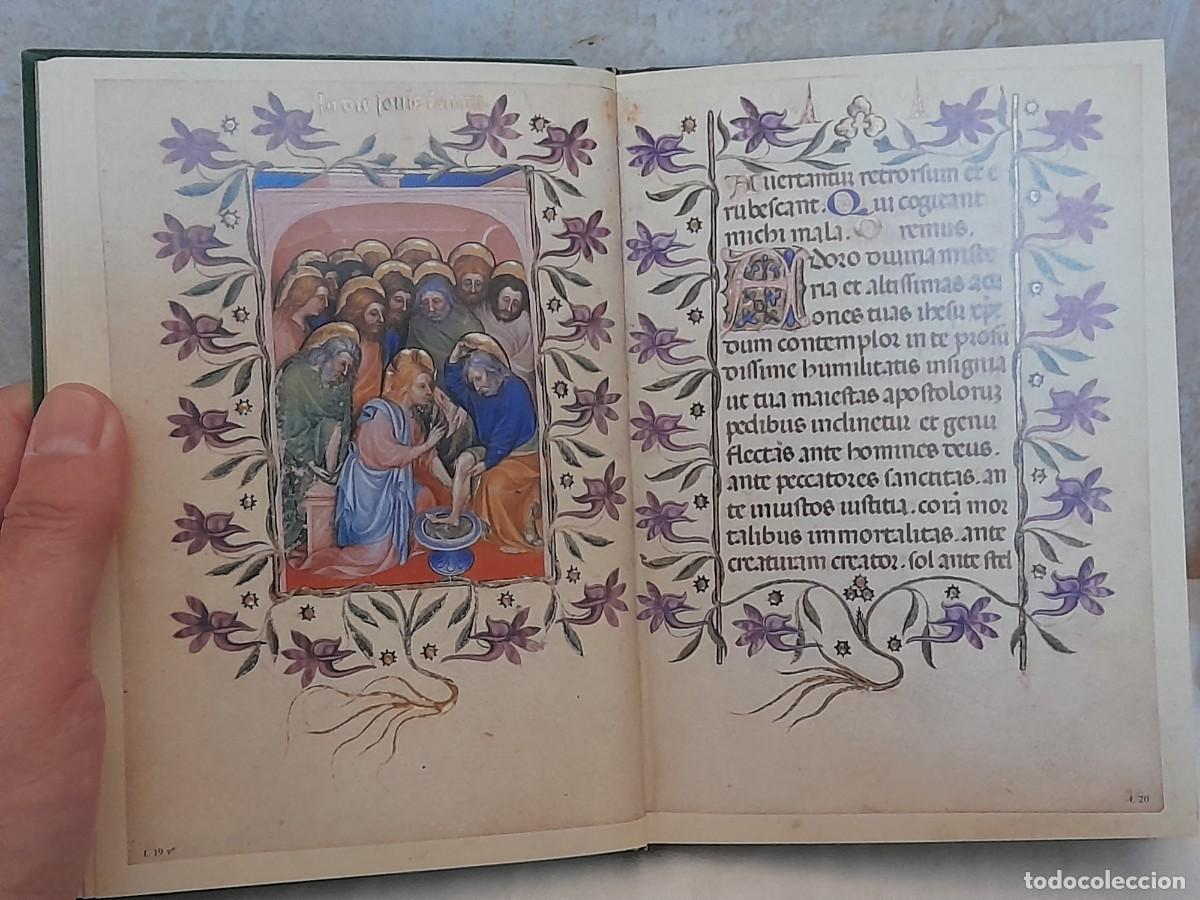 In die Jouis
Auertantur retrorsum et e
rubescant. Qui cogitant
michi mala. Oremus.
Adoro diuina miste
ria et altissimas acti
ones tuas ihesu xp̄e
dum contemplor in te profū
dissime humilitatis insignia
ut tua maiestas apostoloruʒ
pedibus inclinetur et genu
flectas ante homines deus.
ante peccatores sanctitas. an
te iniustos iustitia. corā mor
talibus immortalitas. ante
creaturam creator. sol ante stel
f. 19 vº
f. 20
todocoleccion